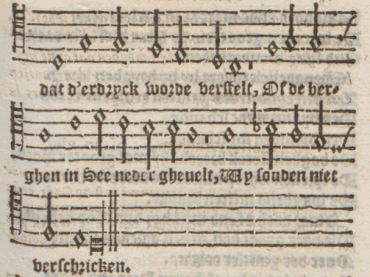 dat d'erdryck worde verstelt, Of de ber-
ghen in See neder ghevelt, Wy souden niet
verschricken.